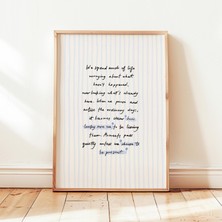 We spend much of life
worrying about what
hasn't happened,
overlooking what's already
here. When we pause and
notice the ordinary days,
it becomes clear how
lucky we are to be living
them. Moments pass
quietly unless we choose to
be present.